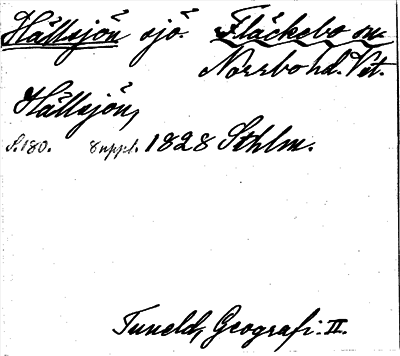 Hällsjön sjö. Fläckebo sn.
Norrbo hd. Vst.
Hällsjön,
S. 180. Suppl. 1828 Sthlm.
Tuneld, Geografi. II.